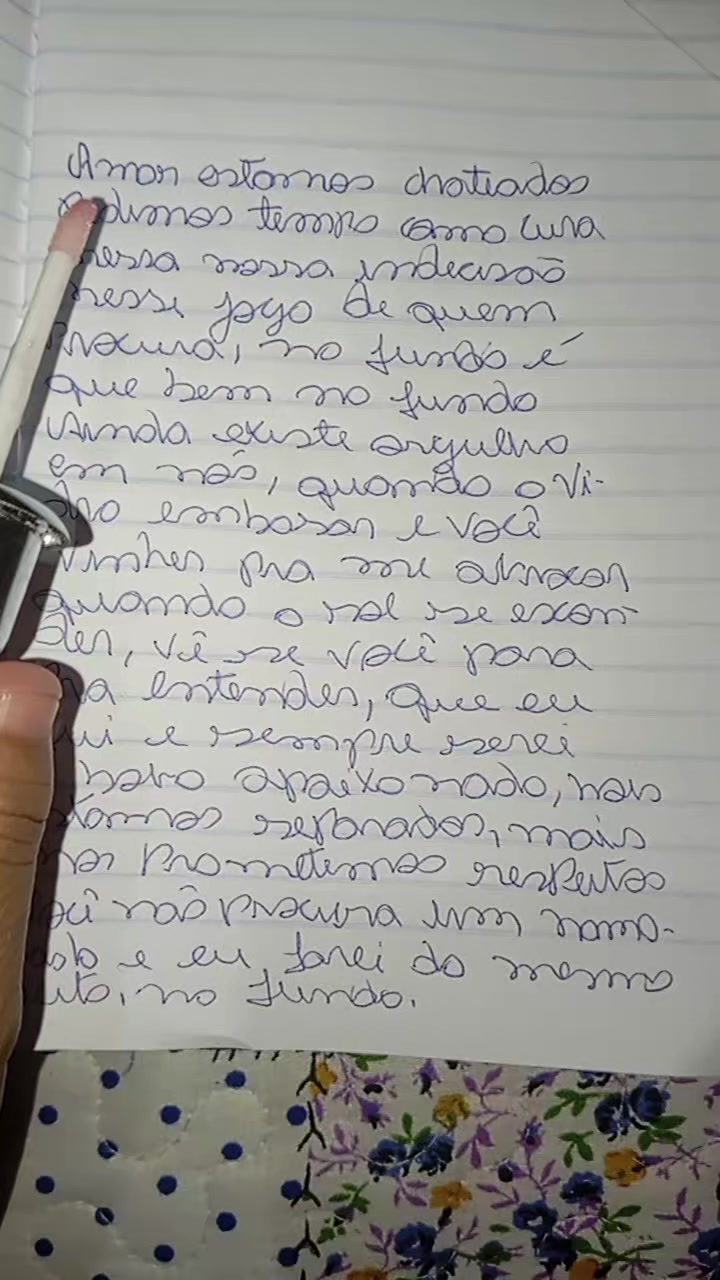 Amor estamos chateados
pedimos tempo como cura
nessa nossa indecisão
nesse jogo de quem
procura, no fundo é
que bem no fundo
Ainda existe orgulho
em nós, quando o vi-
dro embasar e você
vinher pra me abraçar
quando o sol se escon-
der, vê se você para
pra entender, que eu
fui e sempre serei
baro apaixonado, nois
estamos separados, mais
nos prometemos respeitos
você não procura um namo-
rado e eu farei do mesmo
jeito, no fundo.